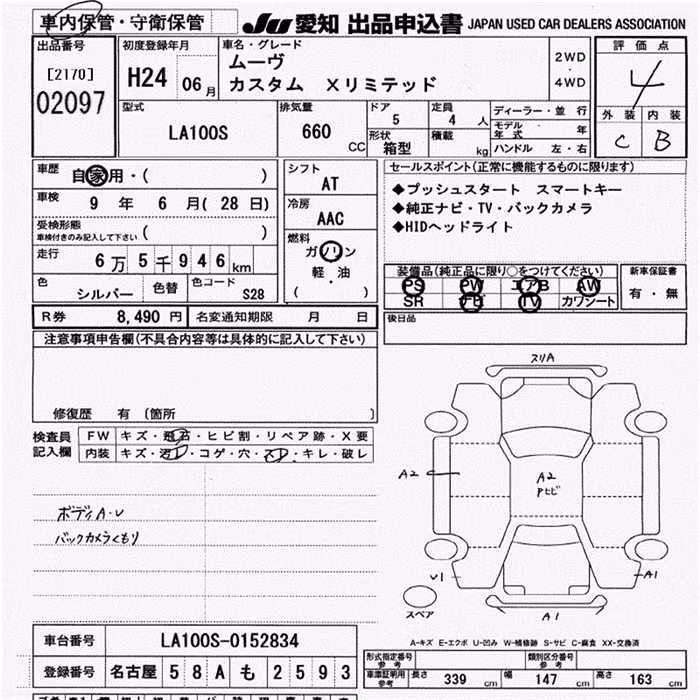 車内保管・守衛保管
JU 愛知 出品申込書 JAPAN USED CAR DEALERS ASSOCIATION
出品番号
[2170]
02097
初度登録年月
H24 06月
車名・グレード
ムーヴ
カスタム Xリミテッド
2WD
・
4WD
評価点
4
外装 内装
C B
型式
LA100S
排気量
660 CC
ドア
5
定員
4 人
形状
箱型
積載
kg
ディーラー・並行
モデル年式 年
ハンドル 左・右
車歴 自家用・( )
車検 9 年 6 月(28日)
受検形態
車検付きのみ記入して下さい ( )
走行 6万5千946km
色 シルバー 色替 色コード S28
シフト
AT
冷房
AAC
燃料
ガソリン
軽・油
( )
セールスポイント(正常に機能するものに限ります)
◆プッシュスタート スマートキー
◆純正ナビ・TV・バックカメラ
◆HIDヘッドライト
装備品(純正品に限り○をつけてください)
PS PW エアB AW
SR ナビ TV カワシート
新車保証書
有・無
R券 8,490円 名変通知期限 月 日
後日品
注意事項申告欄(不具合内容等は具体的に記入して下さい)
修復歴 有 〔箇所 〕
検査員
記入欄
FW キズ・飛石・ヒビ割・リペア跡・X要
内装 キズ・汚レ・コゲ・穴・スレ・キレ・破レ
ボディA・U
バックカメラくもり
スリA
A2
A2
Pヒビ
V1
A1
スペア
A1
A-キズ E-エクボ U-凹み W-補修跡 S-サビ C-腐食 XX-交換済
車台番号 LA100S-0152834
登録番号 名古屋 58A も 2593
形式指定番号
参考
類別区分番号
参考
車庫証明用
参考
長さ 339 cm 幅 147 cm 高さ 163 cm